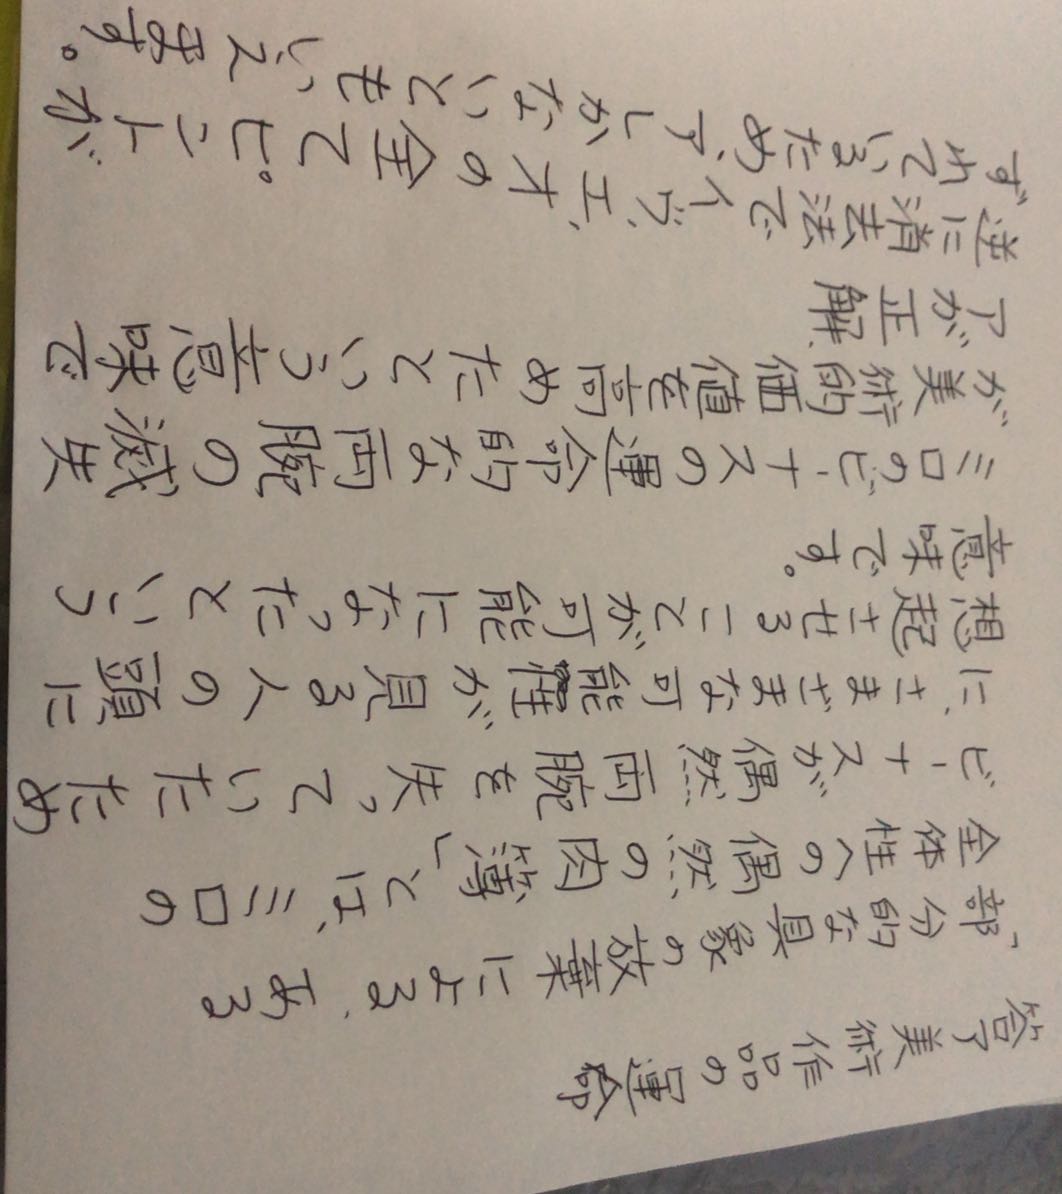 答ア美術作品の運命
「部分的な具象の放棄による、ある
全体性への偶然の肉簿」とは、ミロの
ビーナスが偶然両腕を失っていたため
に、さまざまな可能性が見る人の頭に
想起させることが可能になったという
意味です。
ミロのビーナスの運命的な両腕の滅失
が美術的価値を高めたという意味で
アが正解、
逆に消去法でイ、ウ、エ、オの全てピントが
ずれているため、アしかないともいえます。